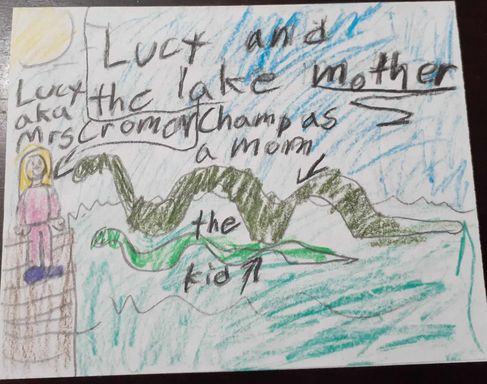 Lucy and
the lake mother
Lucy
aka
Mrs Croman
Champ as
a mom
the
kid